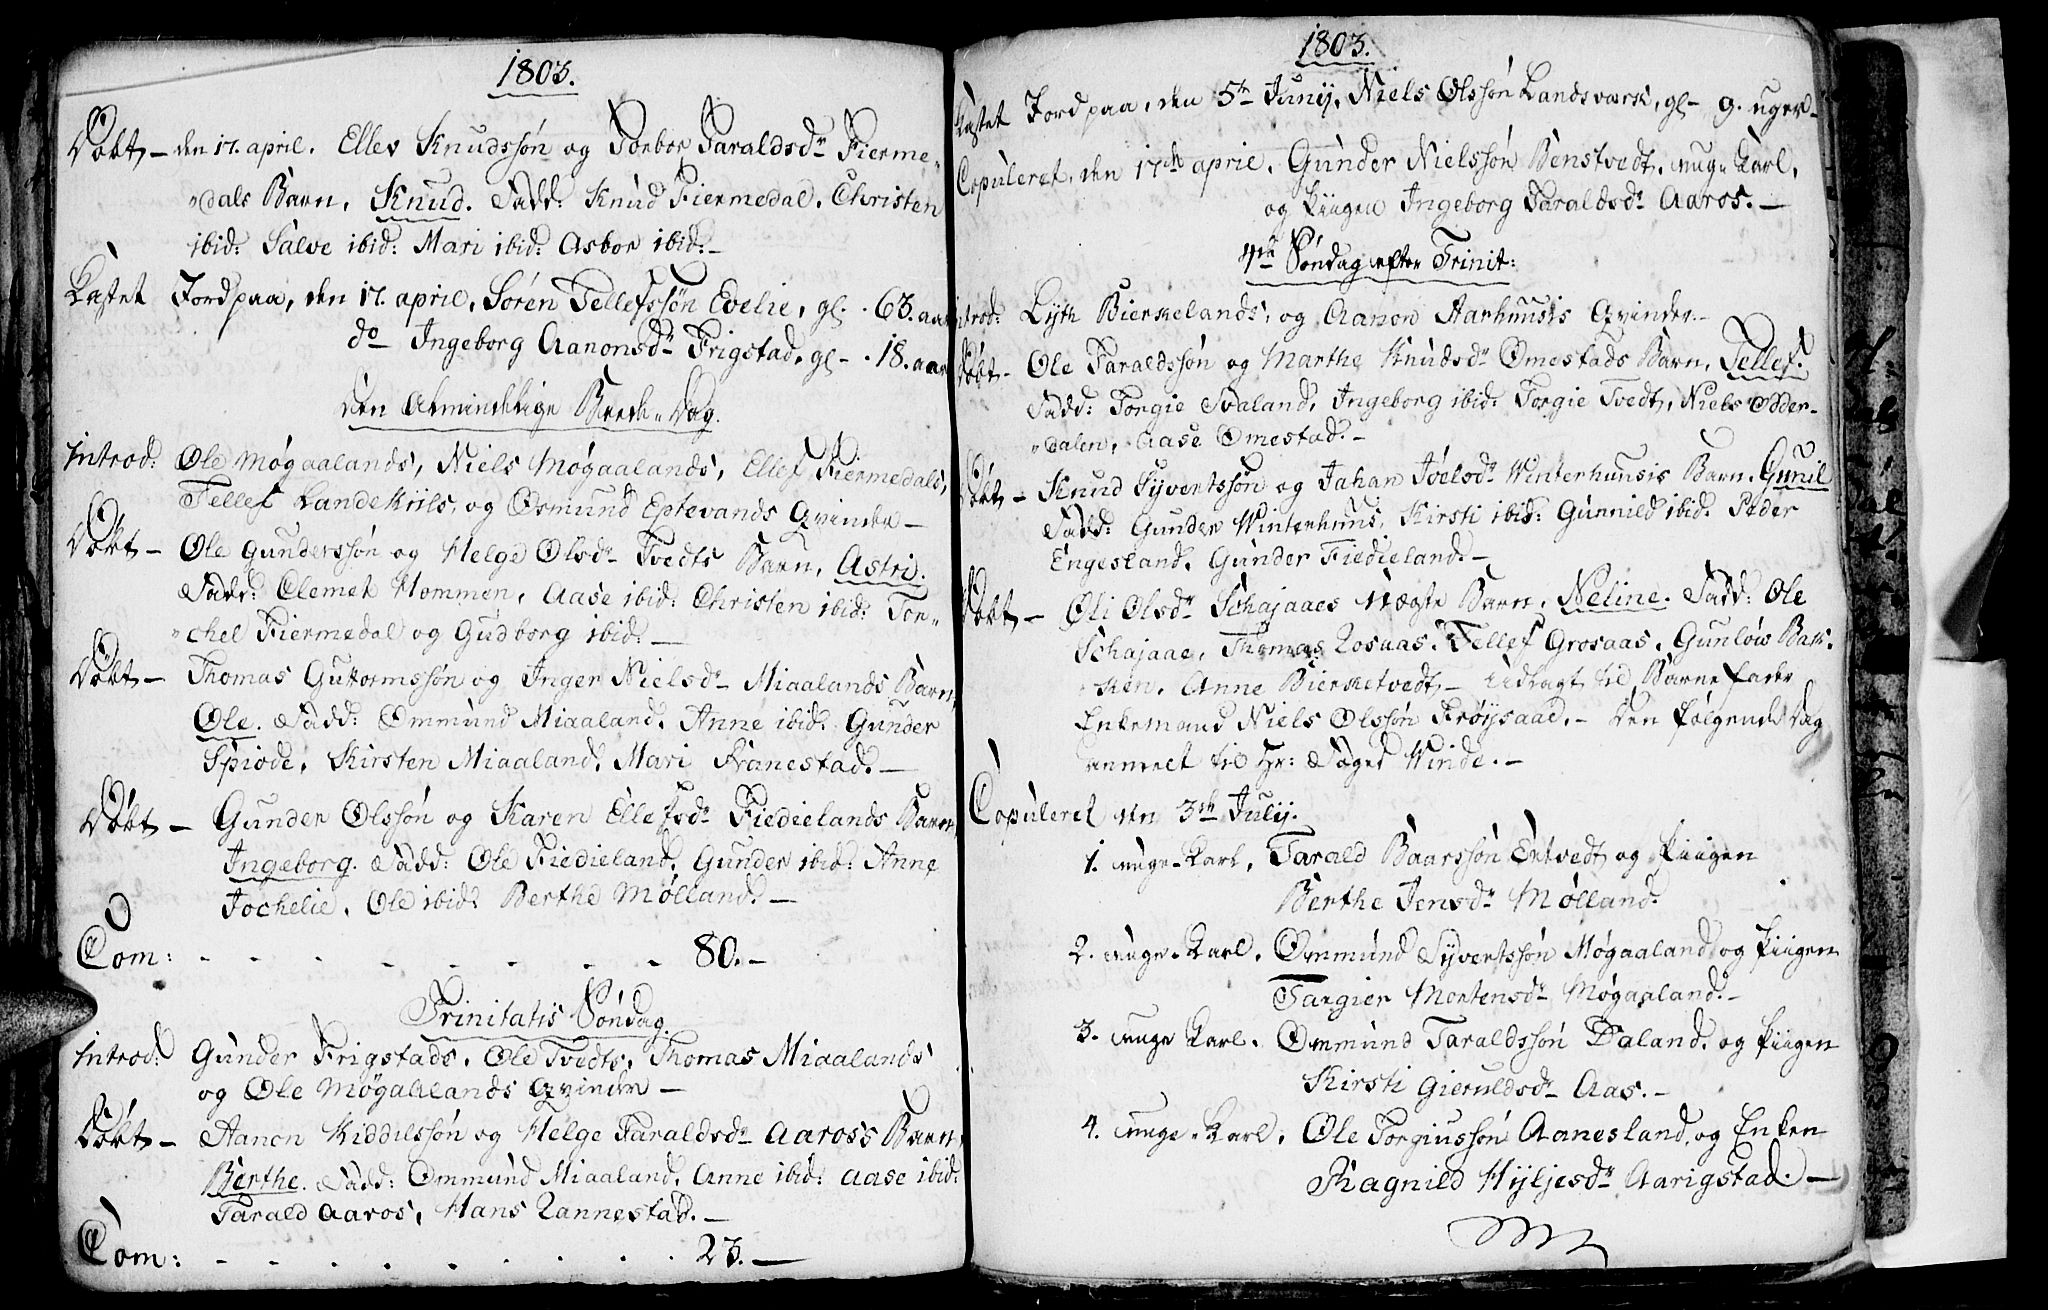 1803.
Døbt – den 17. april. Ellev Knudssøn og Torbor Taraldsdr Fierme„
„dals Barn, Knud. Fadd: Knud Fiermedal, Christen
ibid: Salve ibid: Mari ibid: Asbor ibid: –
Kastet Jord paa, den 17. april, Søren Tellefssøn Evelie, gl. . 63. aar
do Ingeborg Aanonsdr Frigstad, gl – . 18. aar
den Almindelige Beede-Dag.
Introd: Ole Møgaalands, Niels Møgaalands, Ellef Fiermedals,
Tellef Landekiils, og Osmund Eptevands Qvinder –
Døbt – Ole Gunderssøn og Helge Olsdr Tvedts Barn, Astri.
Fadd: Clemet Hommen, Aase ibid: Christen ibid: Tor„
„chel Fiermedal og Gudborg ibid: –
Døbt – Thomas Guttormssøn og Inger Nielsdr Miaalands Barn,
Ole. Fadd: Ommund Miaaland, Anne ibid: Gunder
Spiode, Kirsten Miaaland, Mari Franestad. –
Døbt – Gunder Olssøn og Karen Ellefsdr Fiedielands Barn,
Ingeborg. Fadd: Ole Fiedieland, Gunder ibid: Anne
Jochelie, Ole ibid: Berthe Mølland. –
Com: - - - - - - - - 80. –
Trinitatis Søndag.
Introd: Gunder Frigstads, Ole Tvedts, Thomas Miaalands
og Ole Møgaalands Qvinder –
Døbt – Aanon Kiddilssøn og Helge Taraldsdr Aaross Barn,
Berthe. Fadd: Ommund Miaaland, Anne ibid: Aase ibid:
Tarald Aaros, Hans Rannestad. –
Com: - - - - - - - - 23. –
1803.
Kastet Jord paa, den 5te Junij, Niels Olssøn Landsværk, gl – 9. uger –
Copuleret, den 17de april, Gunder Nielssøn Benstvedt, unge Karl,
og Piigen Ingeborg Taraldsdr Aaros. –
4de Søndag efter Trinit:
Introd: Lyth Bierkelands, og Aanon Aarhuusis Qvinder –
Døbt – Ole Taraldssøn og Marthe Knudsdr Omestads Barn, Tellef.
Fadd: Torgie Svaland, Ingeborg ibid: Torgie Tvedt, Niels Odder„
„dalen, Aase Omestad. –
Døbt – Knud Syvertssøn og Johan Joelsdr Winterhuusis Barn, Gunil
Fadd: Gunder Winterhuus, Kirsti ibid: Gunnild ibid: Peder
Engesland, Gunder Fiedieland. –
Døbt – Oli Olsdr Schajaaes Uægte Barn, Neline. Fadd: Ole
Schajaae, Thomas Rosaas, Tellef Grosaas, Gunlow Bak„
„ken, Anne Bierketvedt – Udlagt til Barnefader
Enkemand Niels Olssøn Frøysaae. – den følgende Dag
anmelt til Hr: Foged Winde. –
Copuleret den 3de Julij.
1. unge-Karl, Tarald Baarssøn Entvedt og Piigen
Berthe Jensdr Mølland.
2. unge-Karl, Ommund Syvertssøn Møgaaland og Piigen
Targier Mortensdr Møgaaland. –
3. unge Karl, Ommund Taraldssøn Daland, og Piigen
Kirsti Gieruldsdr Aas. –
4. unge-Karl, Ole Torgiussøn Aanesland, og Enken
Ragnild Hyljesdr Aarigstad. –